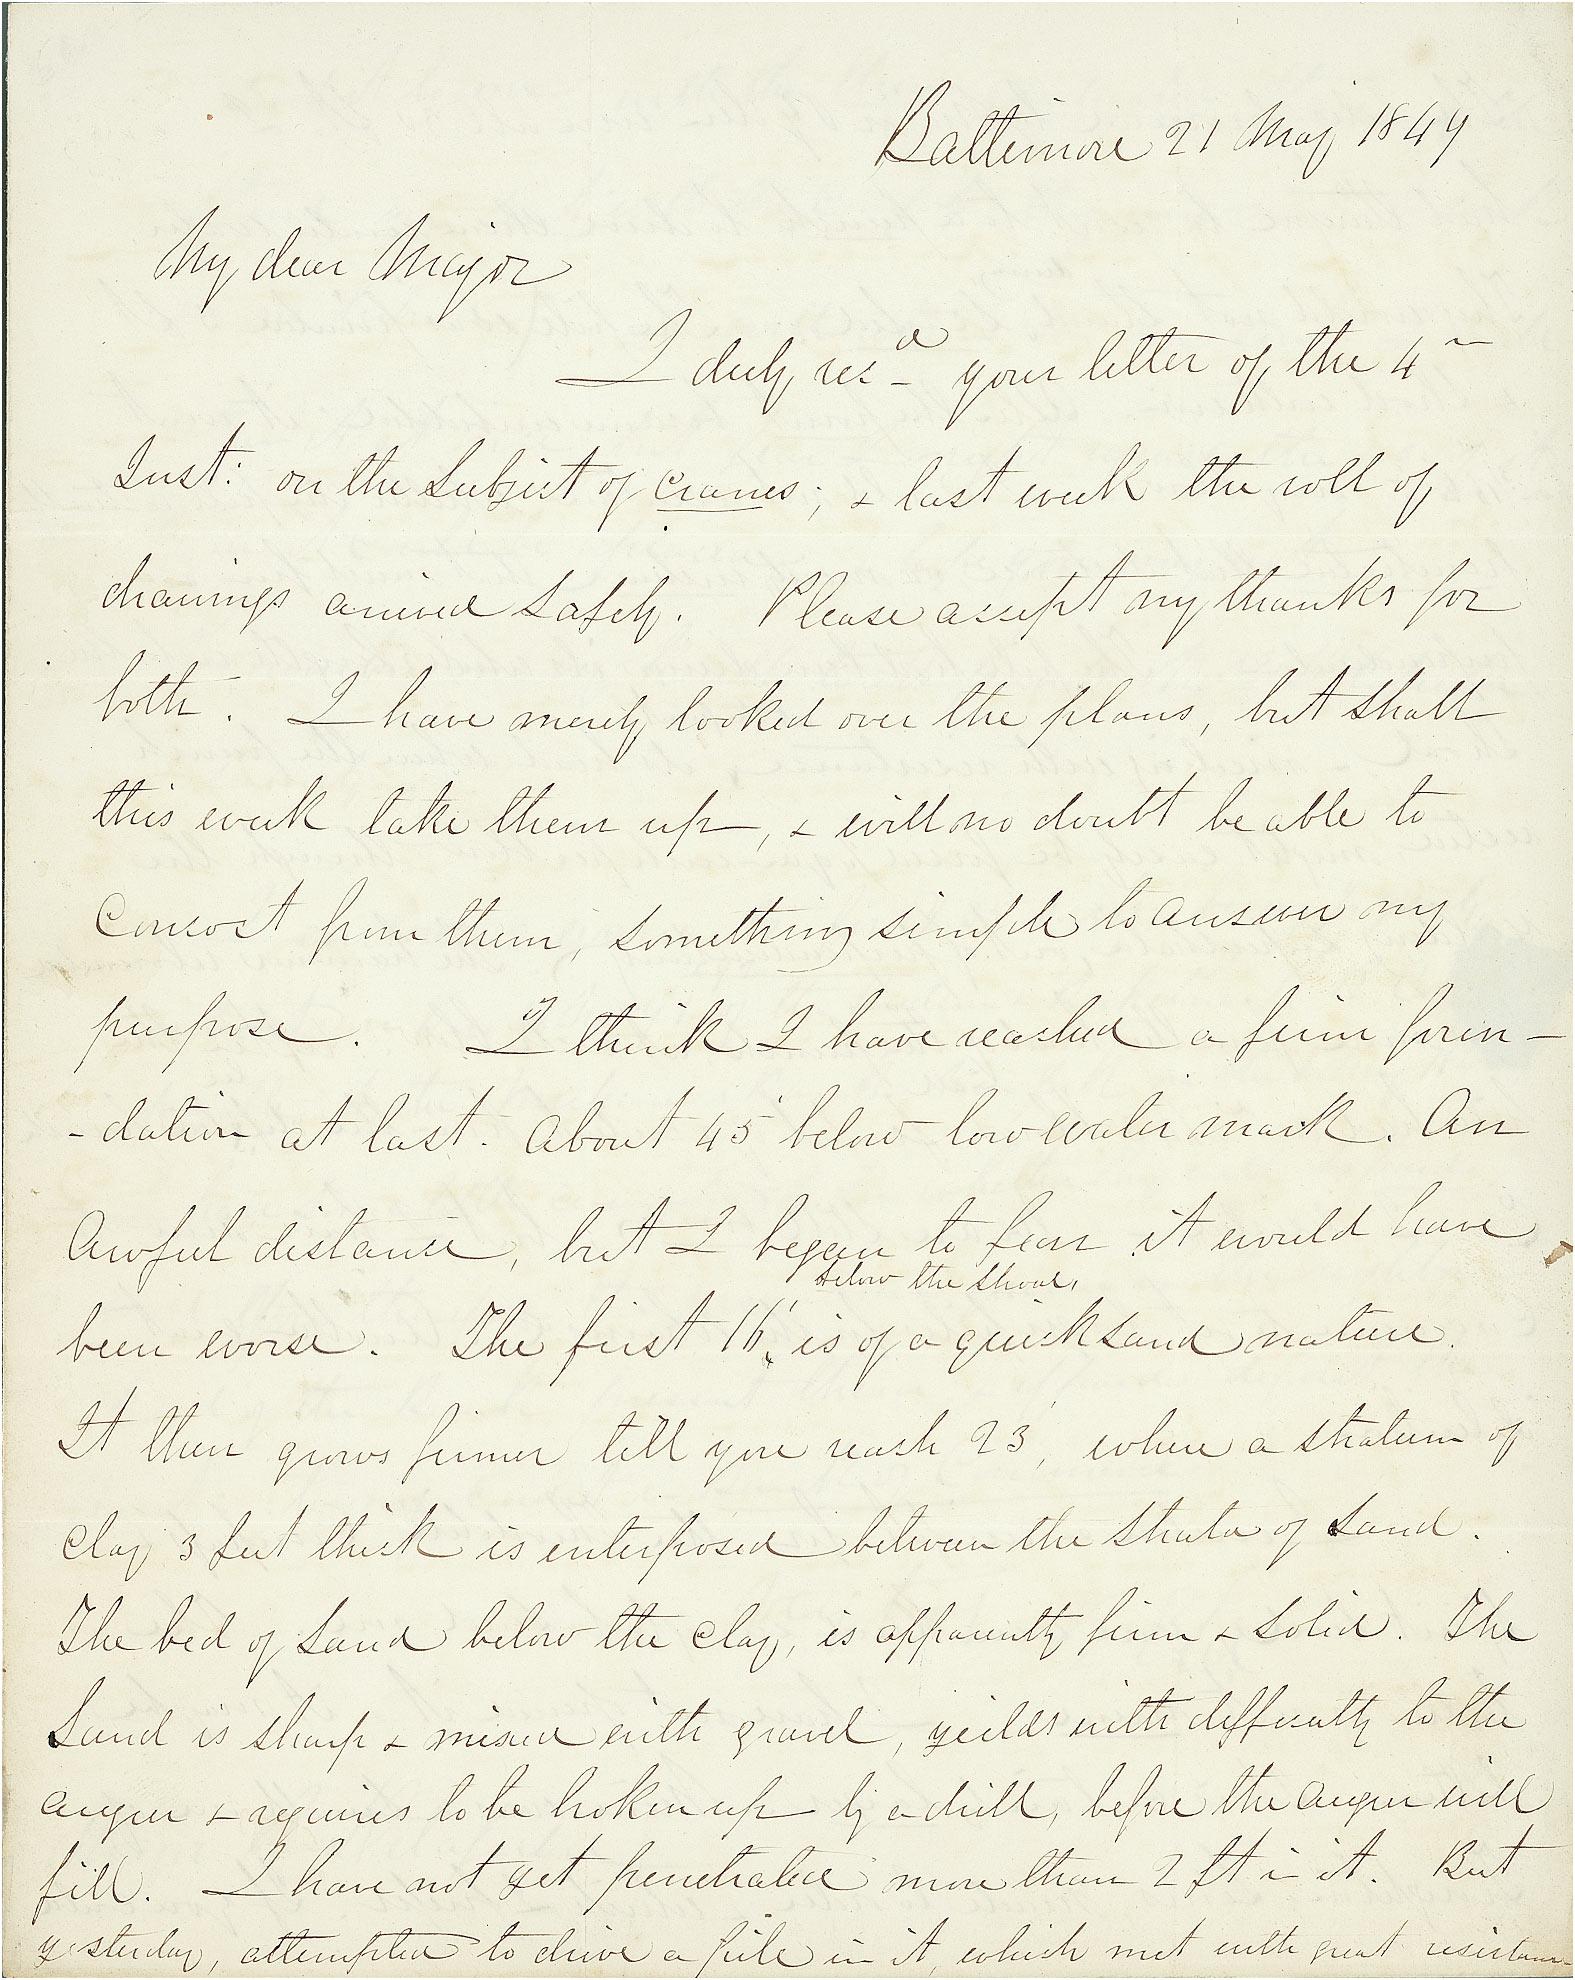 Baltimore 21 May 1849
My dear Major
I duly recd your letter of the 4th
Inst: on the subject of cranes; & last week the roll of
drawings arrived safely. Please accept my thanks for
both. I have merely looked over the plans, but shall
this week take them up, & will no doubt be able to
concoct from them, something simple to answer my
purpose. I think I have reached a firm foun-
-dation at last. About 45' below low water mark. An
awful distance, but I began to fear it would have
below the shoal,
been worse. The first 16' is of a quicksand nature.
It then grows firmer till you reach 23', where a stratum of
clay 3 feet thick is interposed between the strata of sand.
The bed of sand below the clay, is apparently firm & solid. The
sand is sharp & mixed with gravel, yeilds with difficulty to the
auger & requires to be broken up by a drill, before the auger will
fill. I have not yet penetrated more than 2 ft in it. But
yesterday, attempted to drive a pile in it, which met with great resistance